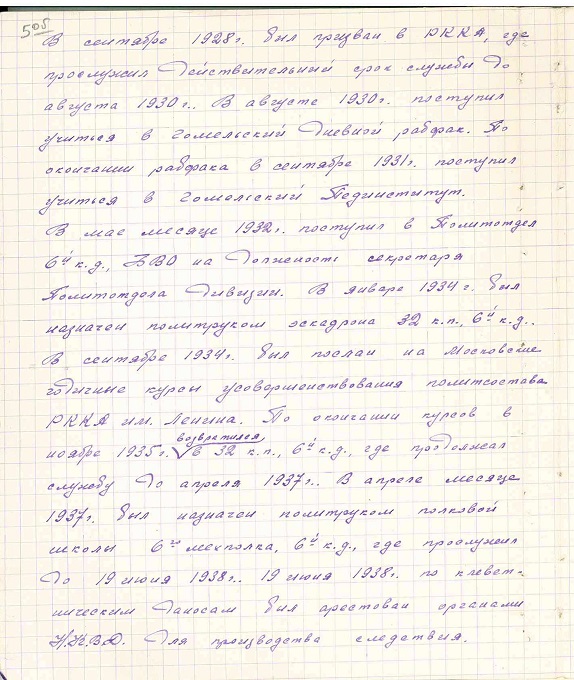 505
В сентябре 1928г. был призван в РККА, где
прослужил действительный срок службы до
августа 1930г.. В августе 1930г. поступил
учиться в Гомельский Дневной рабфак. По
окончании рабфака в сентябре 1931г. поступил
учиться в Гомельский Пединститут.
В мае месяце 1932г. поступил в Политотдел
6й к.д., БВО на должность секретаря
Политотдела Дивизии. В январе 1934г. был
назначен политруком эскадрона 32 к.п., 6й к.д..
В сентябре 1934г. был послан на Московские
годичные курсы усовершенствования политсостава
РККА им. Ленина. По окончании курсов в
ноябре 1935г. возвратился, в 32 к.п., 6й к.д., где продолжал
службу до апреля 1937г.. В апреле месяце
1937г. был назначен политруком полковой
школы 6го мехполка, 6й к.д., где прослужил
до 19 июня 1938г.. 19 июня 1938г. по клевет-
ническим доносам был арестован органами
Н.К.В.Д. для производства следствия.